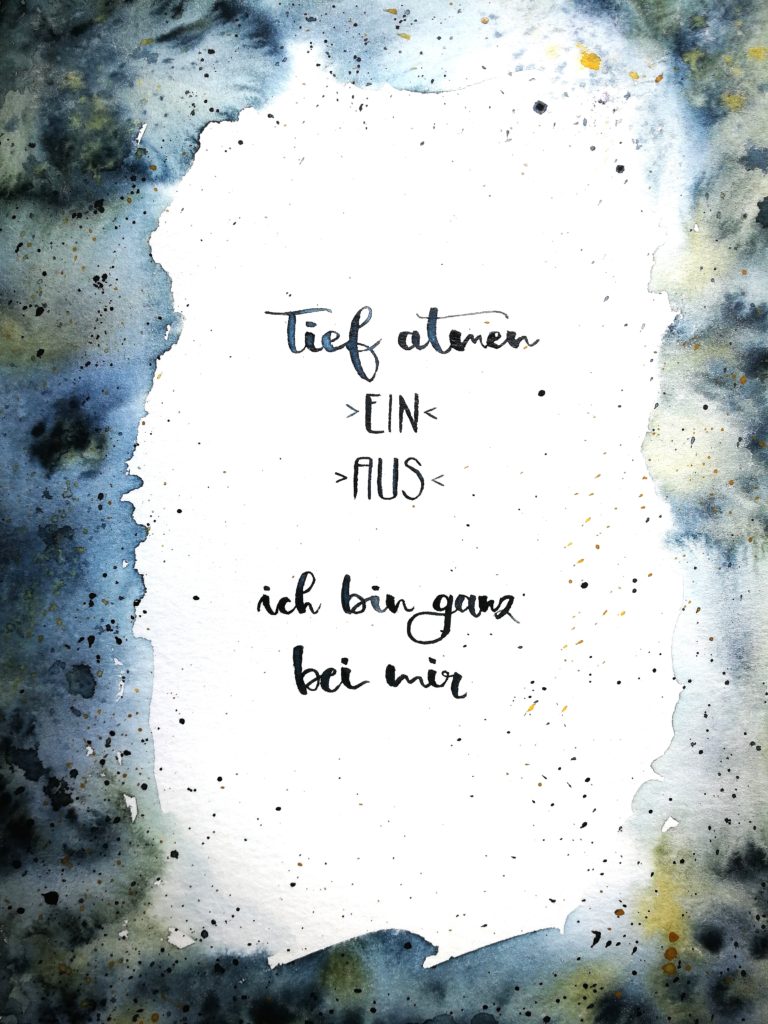 Tief atmen
>EIN<
>AUS<
ich bin ganz
bei mir